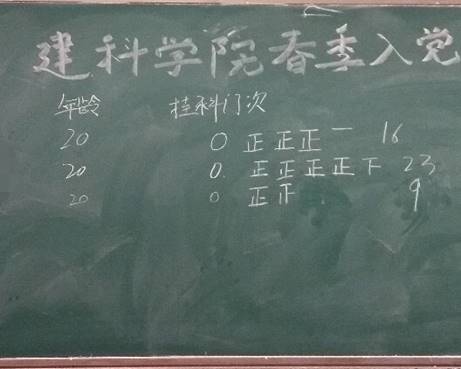 建科学院春季入党
年龄 挂科门次
20 0 正正正一 16
20 0. 正正正正下 23
20 0 正正 9